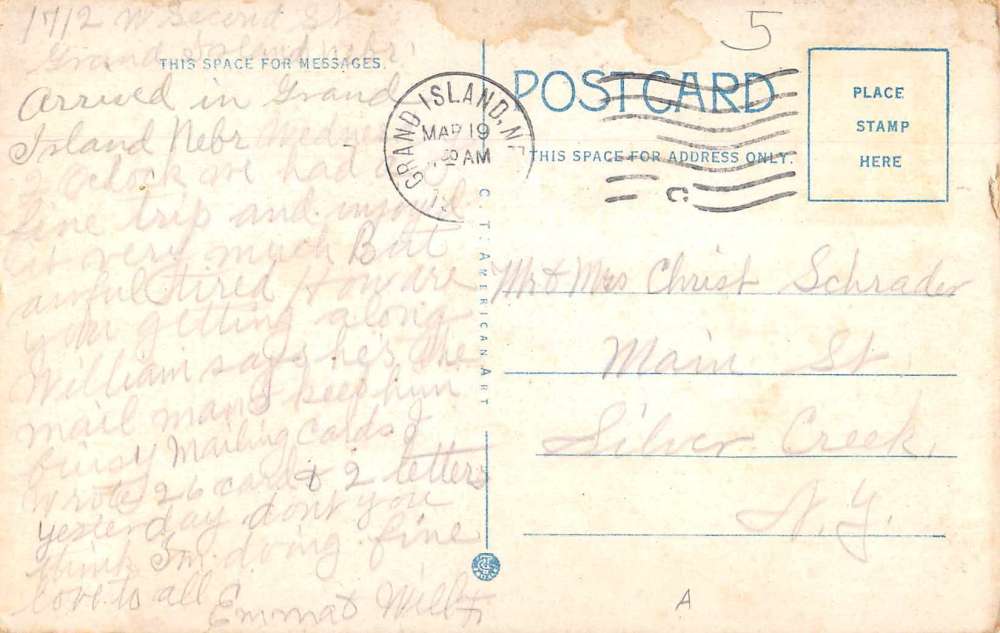 1712 W Second St
Grand Island Nebr.
THIS SPACE FOR MESSAGES.
Arrived in Grand
Island Nebr
oclock we had a
fine trip and
it very much But
awful tired How are
you getting along
William says he's the
mail man I keep him
busy Mailing Cards I
wrote 26 cards & 2 letters
yesterday dont you
think Im doing fine
love to all
Emma & Will
GRAND ISLAND, NE
MAR 19
8 AM
C. T. AMERICAN ART
5
POSTCARD
THIS SPACE FOR ADDRESS ONLY.
C
PLACE
STAMP
HERE
Mr & Mrs Christ Schrader
Main St
Silver Creek,
N.Y.
A